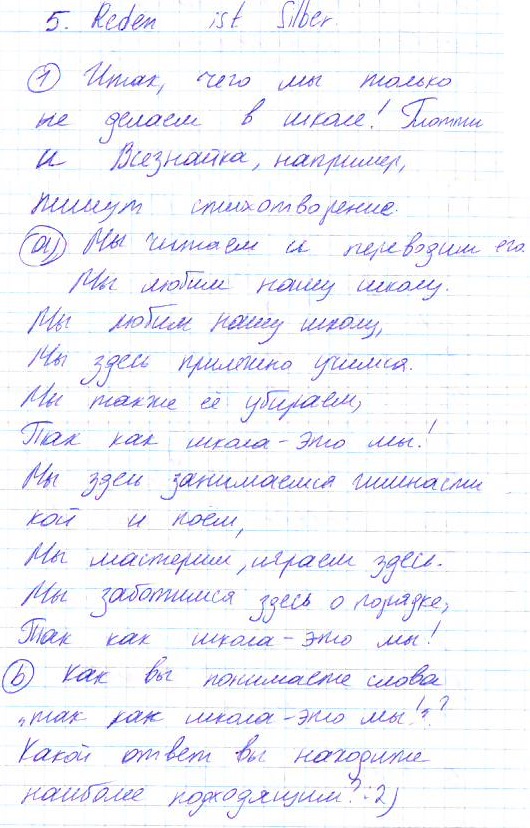 5. Reden ist Silber.
1 Итак, чего мы только
не делаем в школе! Потти
и Всезнайка, например,
пишут стихотворение.
a) Мы читаем и переводим его.
Мы любим нашу школу.
Мы любим нашу школу,
Мы здесь прилежно учимся.
Мы также её убираем,
Так как школа - это мы!
Мы здесь занимаемся гимнасти
кой и поем,
Мы мастерим, играем здесь.
Мы заботимся здесь о порядке,
Так как школа - это мы!
b Как вы понимаете слова
„так как школа - это мы!"?
Какой ответ вы находите
наиболее подходящим? 2)